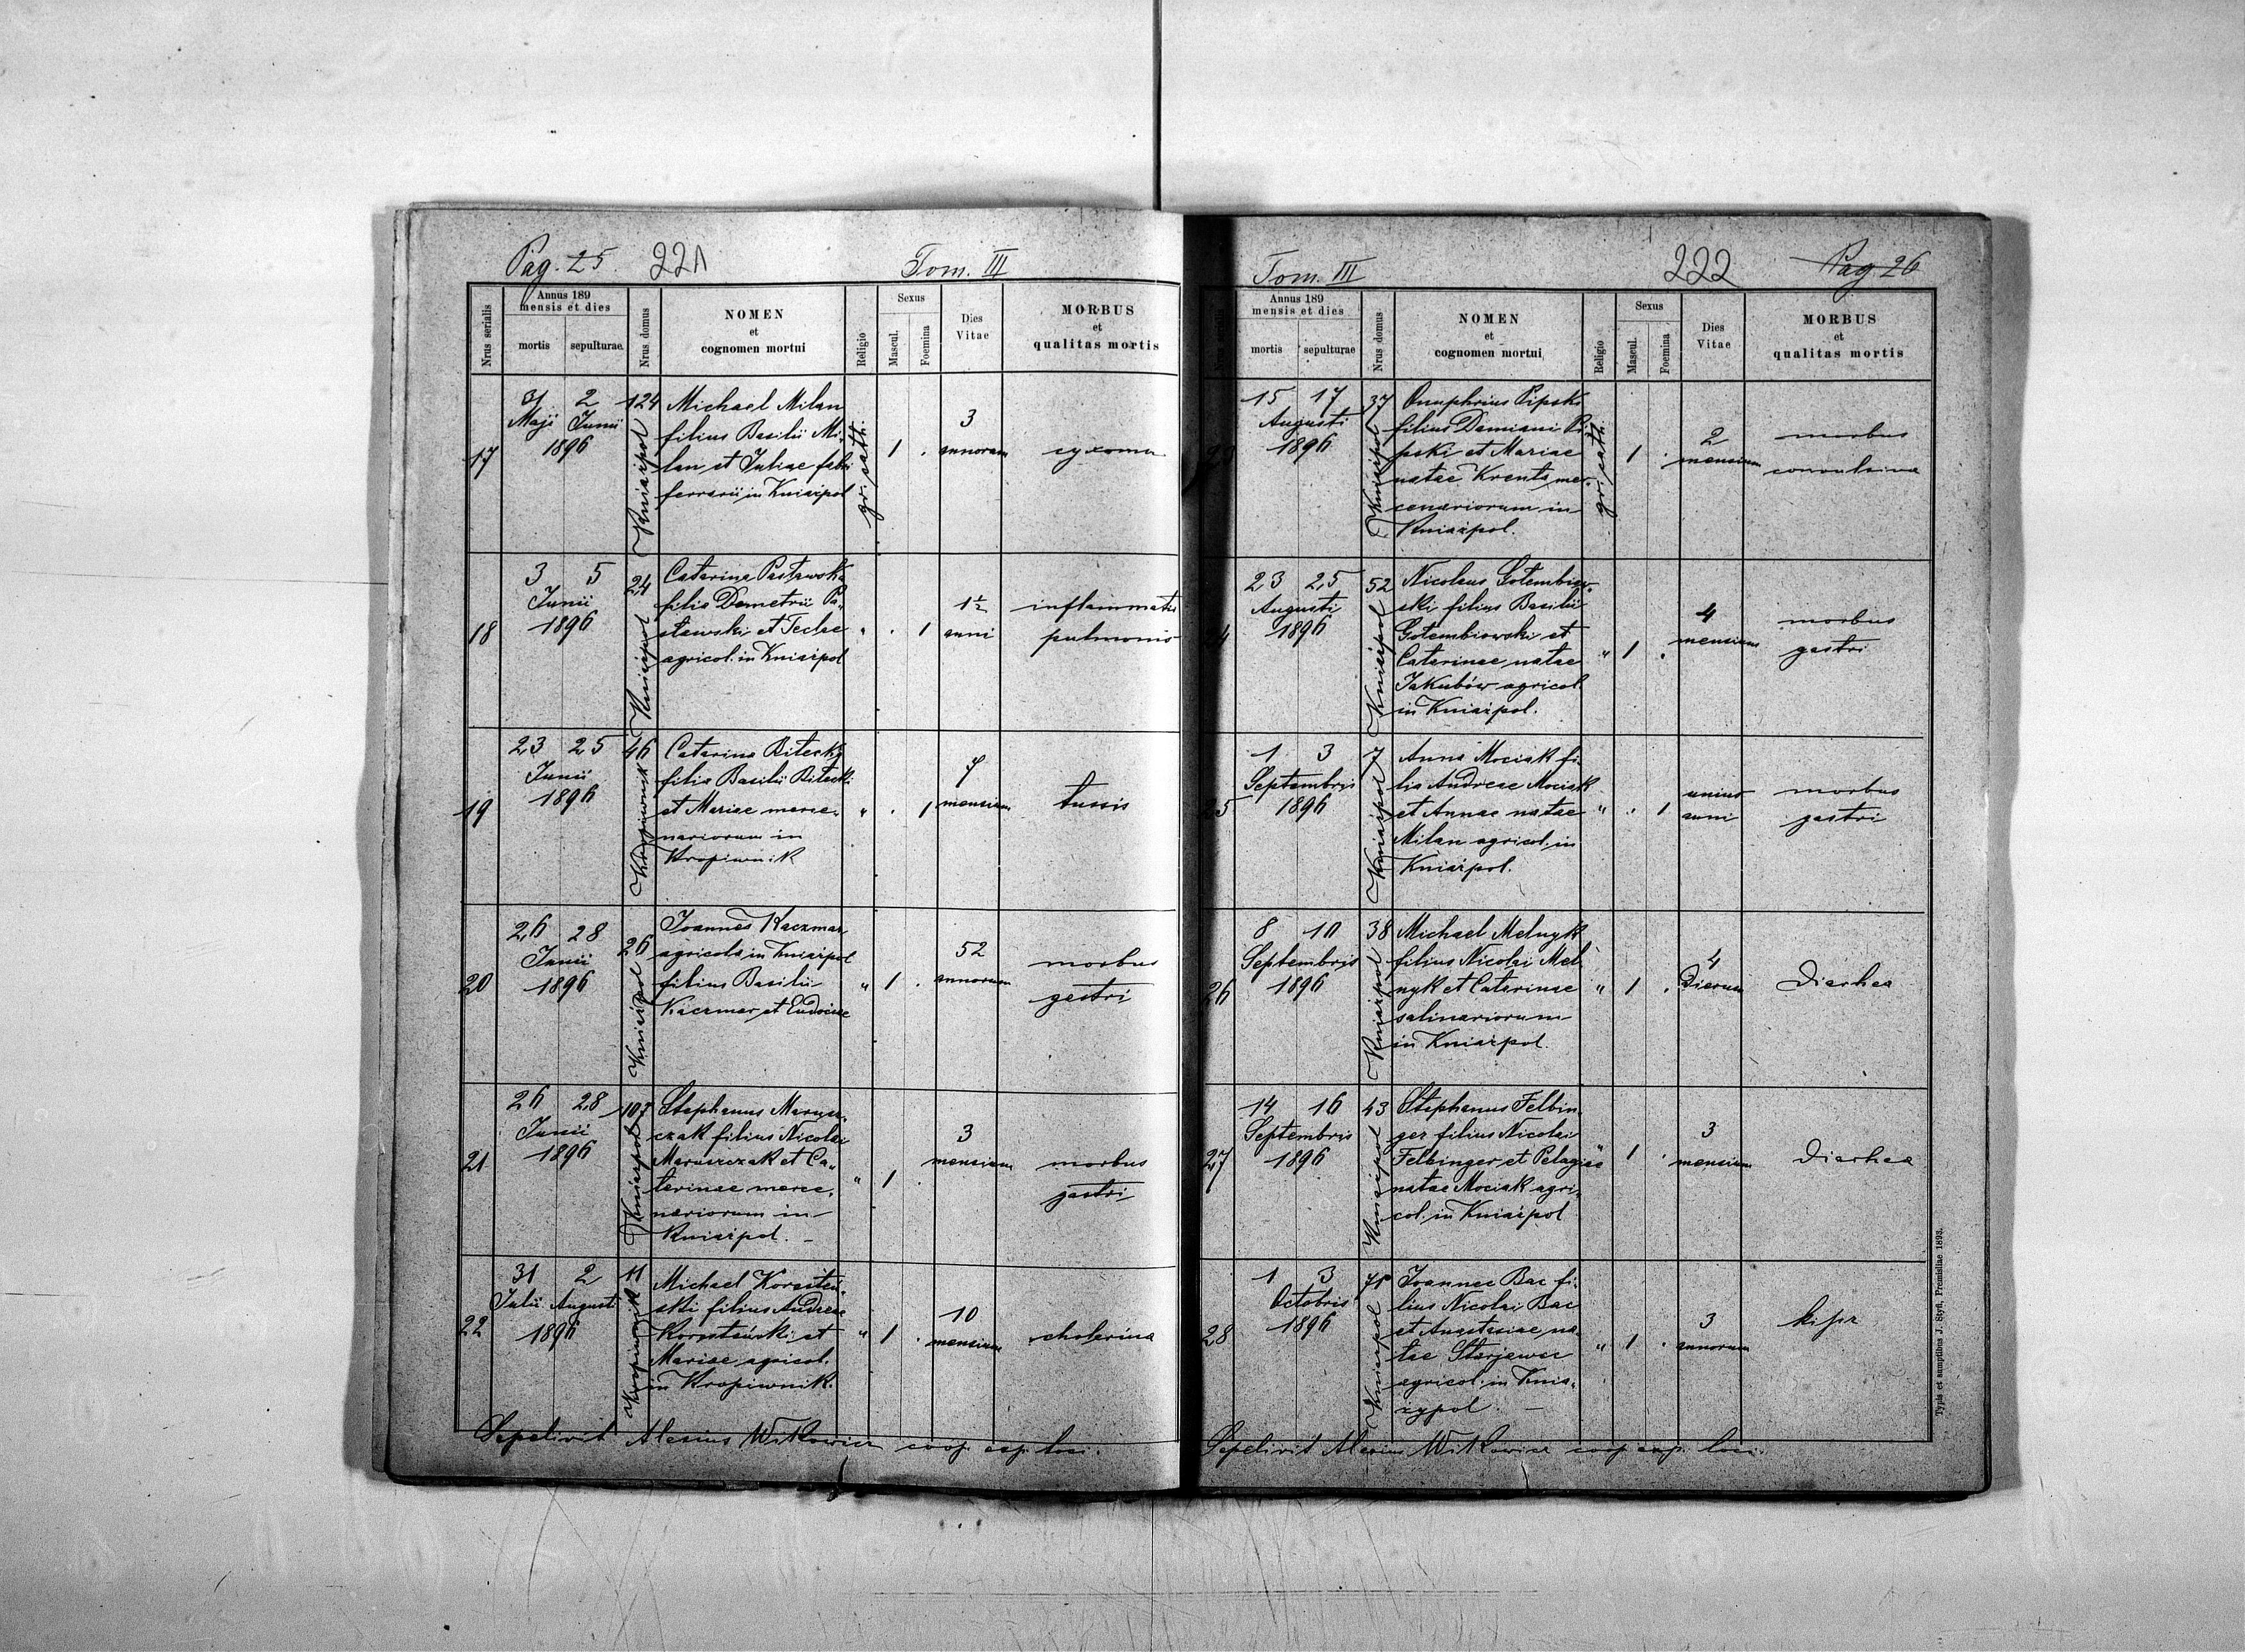 Pag. 25. 221 Tom. III
Nrus serialis
Annus 189
mensis et dies
mortis sepulturae
Nrus domus
NOMEN
et
cognomen mortui
Religio
Sexus
Mascul. Foemina
Dies
Vitae
MORBUS
et
qualitas mortis
17
31 2
Maji Junii
1896
124 Kniaźpol
Michael Milan
filius Basilii Mi-
lan et Juliae fabri
ferrarii in Kniaźpol
gr. cath.
1 .
3
annorum
18
3 5
Junii
1896
24 Kniaźpol
Catarina
filia Demetrii Pa-
sławski et Teclae
agricol. in Kniaźpol
" . 1
1½
anni
inflammatio
pulmonis
19
23 25
Junii
1896
46 Kropiwnik
Catarina Bitecka
filia Basilii Bitecki
et Mariae merce-
nariorum in
Kropiwnik
" . 1
mensium
tussis
20
26 28
Junii
1896
26 Kniaźpol
Joannes Kaczmar
agricola in Kniaźpol
filius Basilii
Kaczmar et Eudociae
" 1 .
52
annorum
morbus
gastri
21
26 28
Junii
1896
107 Kniaźpol
Stephanus Marusz-
czak filius Nicolai
Maruszczak et Ca-
tarinae merce-
nariorum in
Kniaźpol. –
" 1 .
3
mensium
morbus
gastri
22
31 2
Julii Augusti
1896
11 Kropiwnik
Michael
ski filius Andreae
et
Mariae agricol.
in Kropiwnik.
" 1 .
10
mensium
cholerina
Sepelivit Alexius Witkowicz coop. exp. loci.
Tom. III 222 Pag 26
Nrus serialis
Annus 189
mensis et dies
mortis sepulturae
Nrus domus
NOMEN
et
cognomen mortui
Religio
Sexus
Mascul. Foemina
Dies
Vitae
MORBUS
et
qualitas mortis
23
15 17
Augusti
1896
37 Kniaźpol
Onuphrius Pipski
filius Damiani Pi-
pski et Mariae
natae Krenta mer-
cenariorum in
Kniaźpol.
gr. cath.
1 .
2
mensium
morbus
convulsiva
24
23 25
Augusti
1896
52 Kniaźpol
Nicolaus Gołembiow-
ski filius Basilii
Gołembiowski et
Catarinae natae
Jakubów agricol.
in Kniaźpol.
" 1 .
4
mensium
morbus
gastri
25
1 3
Septembris
1896
7 Kniaźpol
Anna Mociak fi-
lia Andreae Mociak
et Annae natae
Milan agricol. in
Kniaźpol.
" . 1
unius
anni
morbus
gastri
26
8 10
Septembris
1896
38 Kniaźpol
Michael Melnyk
filius Nicolai Mel-
nyk et Catarinae
salinariorum
in Kniaźpol.
" 1 .
4
dierum
Diarhea
27
14 16
Septembris
1896
43 Kniaźpol
Stephanus Felbin-
ger filius Nicolai
Felbinger et Pelagiae
natae Mociak agri-
col. in Kniaźpol
" 1 .
3
mensium
Diarhea
28
1 3
Octobris
1896
Kniaźpol
Joannes Bac fi-
lius Nicolai Bac
et Anastasiae na-
tae
agricol. in Knia-
zypol. –
" 1 .
3
annorum
Sepelivit Alexius Witkowicz coop. exp. loci.
Typis et sumptibus J. Styfi, Premisliae 1893.